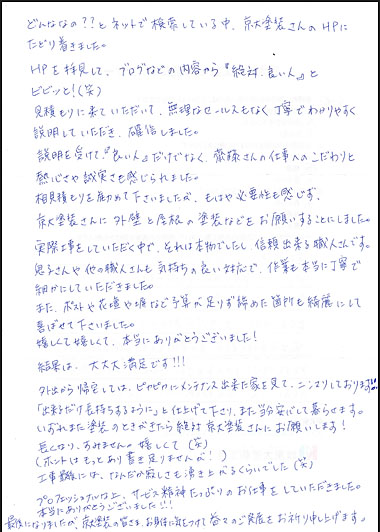 どんななの??とネットで検索している中、京大塗装さんのHPに
たどり着きました。
HPを拝見して、ブログなどの内容から『絶対良い人』と
ビビッと!(笑)
見積もりに来ていただいて、無理なセールスもなく丁寧でわかりやすく
説明していただき、確信しました。
説明を受けて、『良い人』だけでなく、齋藤さんの仕事へのこだわりと
熱心さや誠実さも感じられました。
相見積もりを勧めて下さいましたが、もはや必要性も感じず、
京大塗装さんに外壁と屋根の塗装などをお願いすることにしました。
実際工事をしていただく中で、それは本物でしたし、信頼出来る職人さんです。
息子さんや他の職人さんも気持ちの良い対応で、作業も本当に丁寧で
細かにしていただきました。
また、ポストや花壇や塀など予算が足りず諦めた箇所も綺麗にして
喜ばせて下さいました。
嬉しくて嬉しくて、本当にありがとうございました!
結果は、大大大満足です!!!
外出から帰宅しては、ピカピカにメンテナンス出来た家を見て、ニンマリしております!!
「出来るだけ長持ちするように」と仕上げて下さり、また当分安心して暮らせます。
いずれまた塗装のときがきたら絶対京大塗装さんにお願いします!
長くなり、すみません。嬉しくて(笑)
(ホントはもっとあり書き足りませんが!)
工事難には、なんだか寂しさも湧き上がるくらいでした(笑)
プロフェッショナルな上、サービス精神たっぷりのお仕事をしていただきました。
本当にありがとうございました!!
最後になりましたが、京大塗装の皆さま、お身体に気をつけて益々のご発展をお祈り申し上げます。